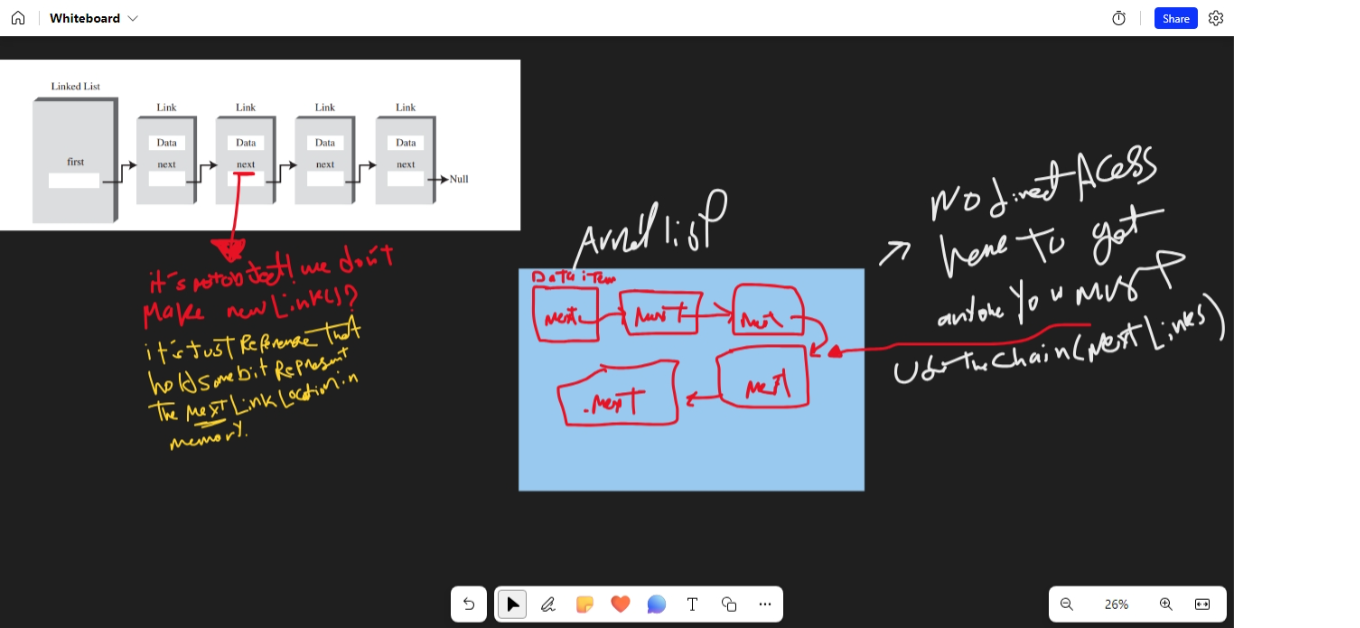 Whiteboard
Share
Linked List
Link
Link
Link
Link
Data
Data
Data
Data
first
next
next
next
next
Null
it's not object! we don't
Make new Link()?
it's Just Reference That
holds some bit Represent
The Next Link Location in
memory.
list
Data item
next
next
next
next
.next
No direct Acess
here To get
you must
Use The Chain (next Links)
T
26%